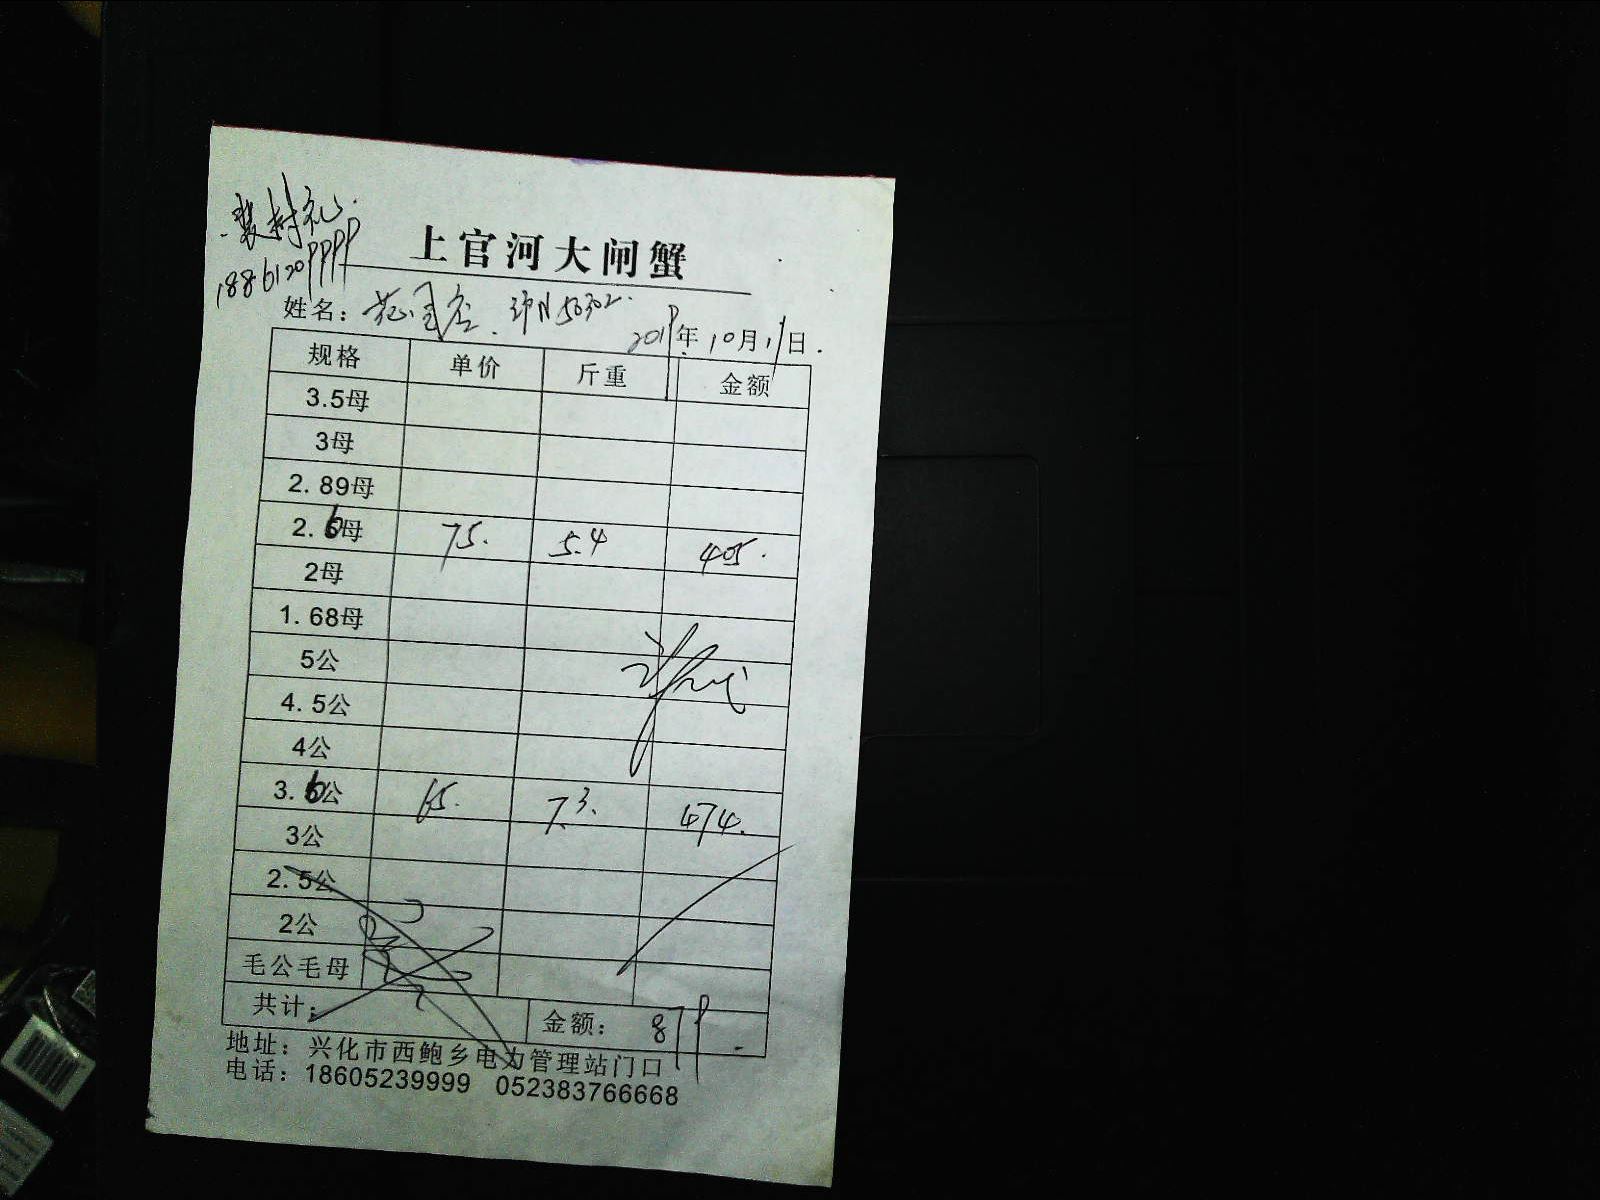 裴树礼.
18861209999
上官河大闸蟹
姓名:
50302.
2019年10月19日.
规格 单价 斤重 金额
3.5母
3母
2.89母
2.6母 75. 5.4 405.
2母
1.68母
5公
4.5公
4公
3.6公 65. 7.3. 474.
3公
2.5公
2公
毛公毛母
共计: 金额: 879
地址:兴化市西鲍乡电力管理站门口
电话:18605239999 052383766668